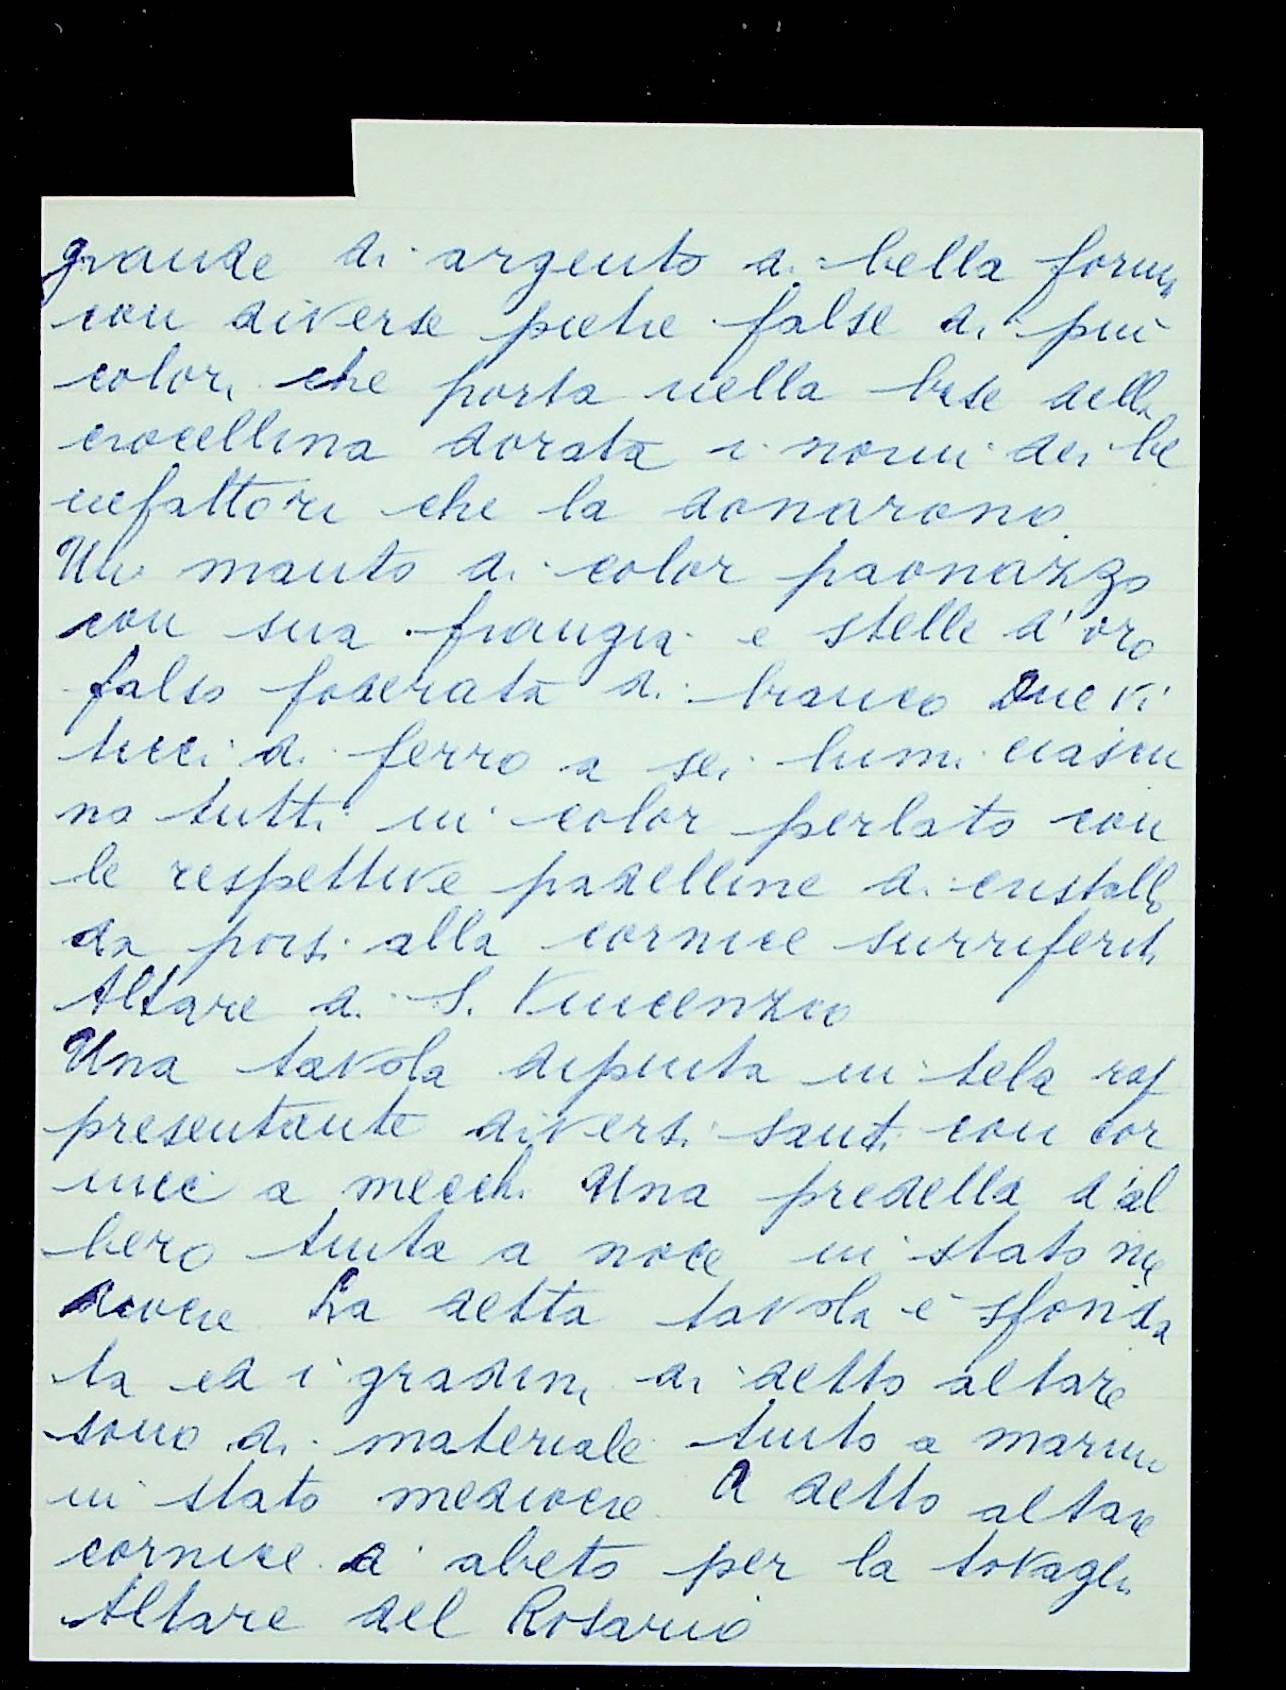 grande di argento di bella forma
con diverse pietre false di più
colori che porta nella base della
crocellina dorata i nomi dei be
nefattori che la donarono
Un manto di color paonazzo
con sua frangia e stelle d'oro
falso foderata di bianco Due vi
ticci di ferro a sei lumi ciascu
no tutti in color perlato con
le respettive padelline di cristallo
da porsi alla cornice surriferita
Altare di S. Vincenzio
Una tavola dipinta in tela rap
presentante diversi santi con cor
nice a mecch. Una predella d'al
bero tinta a noce in stato me
diocre La detta tavola è sfonda
ta ed i gradini di detto altare
sono di materiale tinto a marmo
in stato mediocre A detto altare
cornice d'abeto per la tovaglia
Altare del Rosario